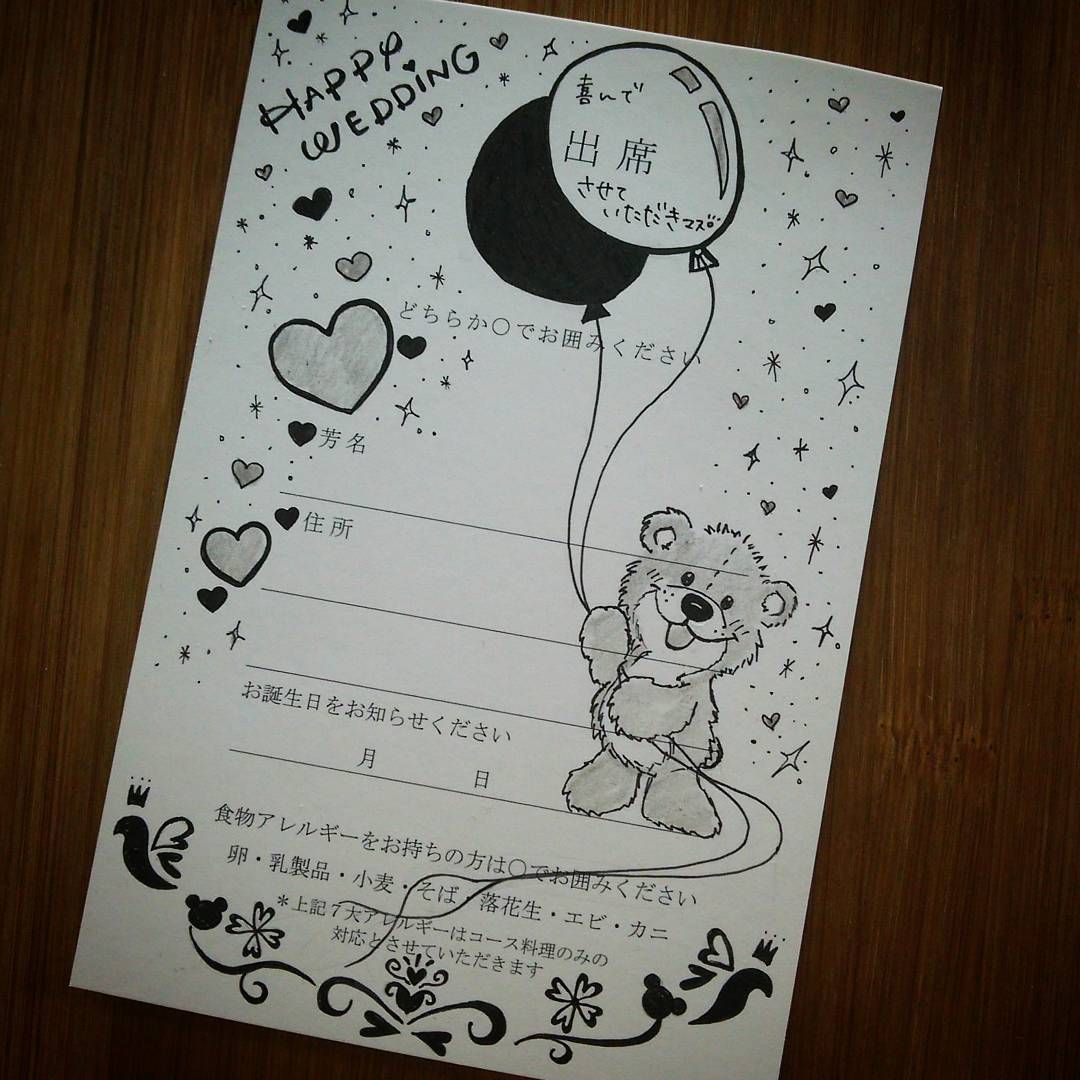 HAPPY
WEDDING
喜んで
出席
させて
いただきマス
どちらか〇でお囲みください
芳名
住所
お誕生日をお知らせください
月 日
食物アレルギーをお持ちの方は〇でお囲みください
卵・乳製品・小麦・そば・落花生・エビ・カニ
*上記7大アレルギーはコース料理のみの
対応とさせていただきます